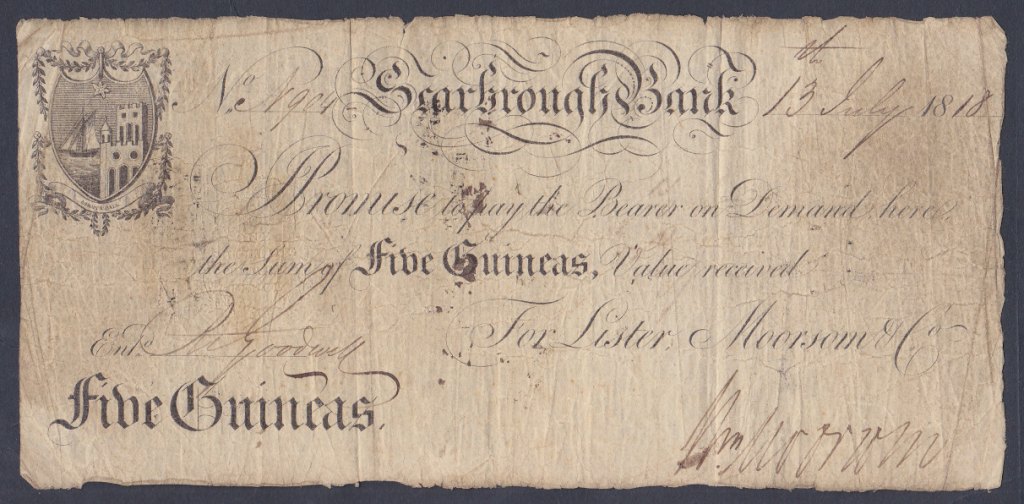 No Scarbrough Bank 13th July 1818
I Promise to pay the Bearer on Demand here
the Sum of Five Guineas, Value received
For Lister, Moorsom & Co
Entd Goodwill
Five Guineas.
Moorsom